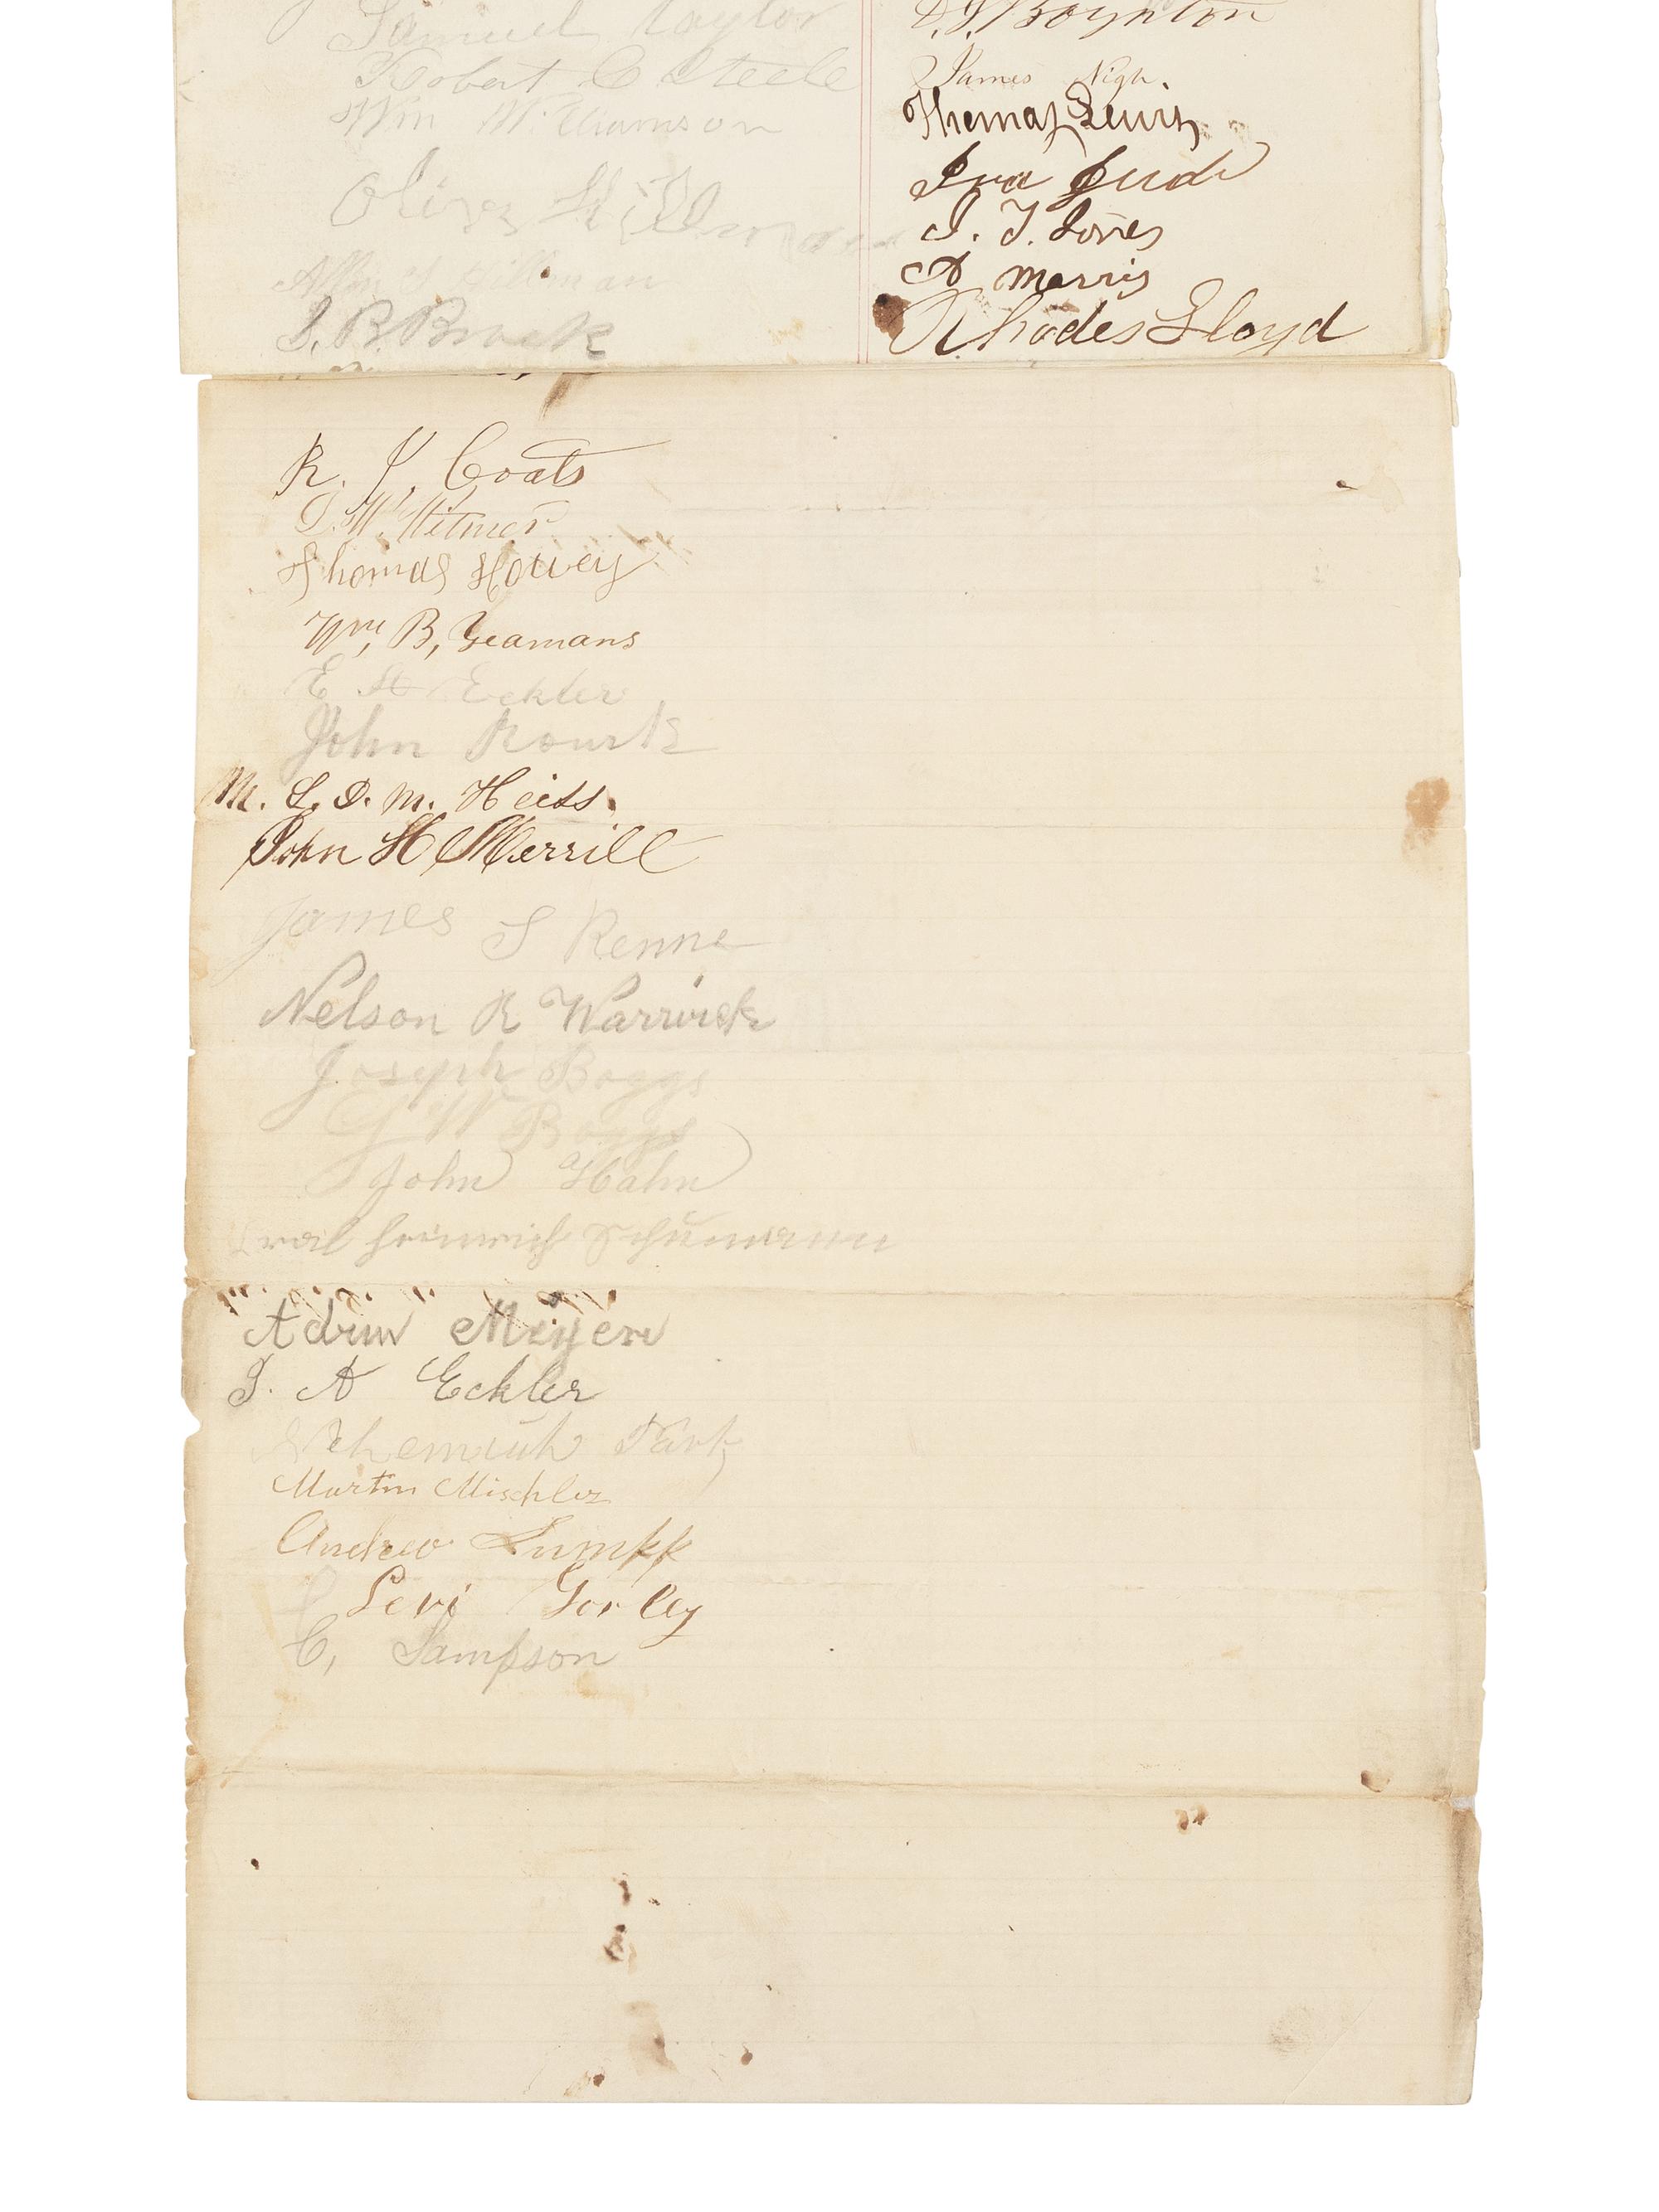 Samuel Taylor
Robert C Steele
Wm Williamson
Oliver
Hillman
Brock
D. J. Boynton
James Nigh.
Thomas Lewis
Ira Jude
T. Jones
A Morris
Rhodes Lloyd
R. J. Coats
D. W. Witmer
Thomas Hovey
Wm, B, Yeamans
E H Eckler
John Rourk
M. L. D. M. Heiss.
John H Merrill
James S Renne
Nelson R Warwick
Joseph Boggs
G W Boggs
John Hahn
heinrich Schümann
Meyer
J. A Eckler
Nehemiah Park
Martin Mischler
Andrew Lumpp
Levi Gorley
C, Sampson